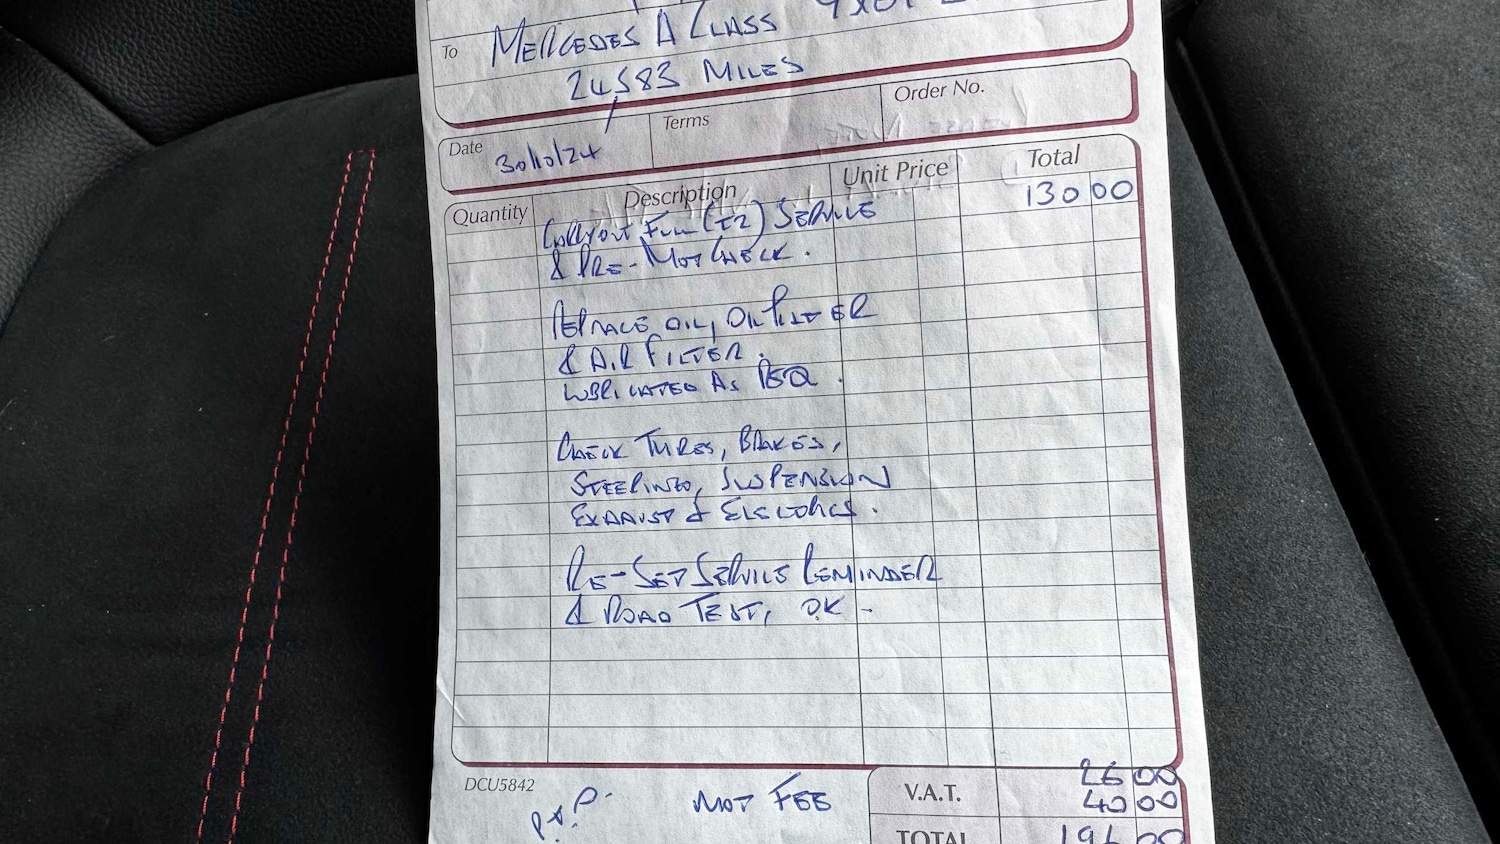 To MERCEDES A CLASS
24,583 MILES
Date 30/10/24 Terms Order No.
Quantity Description Unit Price Total
Carryout Full (T2) SERVICE 130 00
& PRE-MOT CHECK.
REPLACE OIL, OIL FILTER
& AIR FILTER.
LUBRICATED AS REQ.
CHECK TYRES, BRAKES,
STEERING, SUSPENSION
EXHAUST & ELECTRICS.
RE-SET SERVICE REMINDER
& ROAD TEST, OK -
DCU5842 MOT FEE V.A.T. 26 00
40 00
TOTAL 196 00